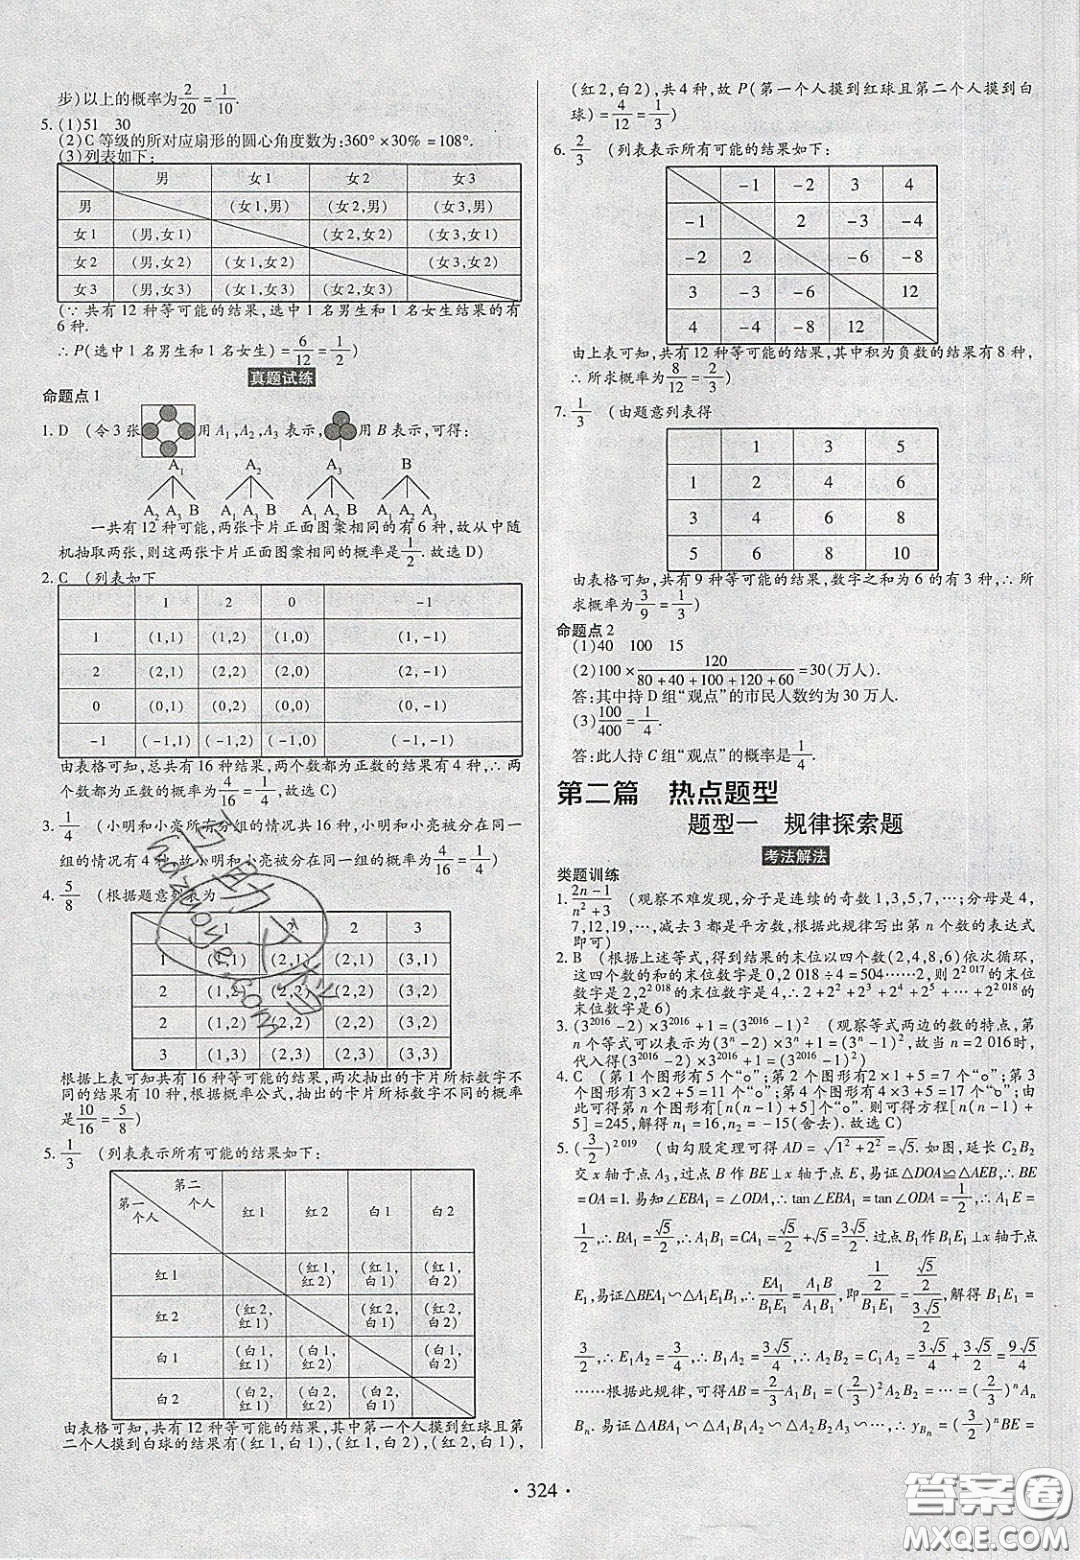 步)以上的概率为2/20=1/10.
5.(1)51 30
(2)C等级的所对应扇形的圆心角度数为:360°×30%=108°.
(3)列表如下:
男 女1 女2 女3
男 (女1,男) (女2,男) (女3,男)
女1 (男,女1) (女2,女2) (女3,女1)
女2 (男,女2) (女1,女2) (女3,女2)
女3 (男,女3) (女1,女3) (女2,女3)
(∵共有12种等可能的结果,选中1名男生和1名女生结果的有
6种.
∴P(选中1名男生和1名女生)=6/12=1/2)
真题试练
命题点1
1.D (令3张 用A₁,A₂,A₃表示, 用B表示,可得:
A₁ A₂ A₃ B
A₂ A₃ B A₁ A₃ B A₁ A₂ B A₁ A₂ A₃
一共有12种可能,两张卡片正面图案相同的有6种,故从中随
机抽取两张,则这两张卡片正面图案相同的概率是1/2.故选D)
2.C (列表如下
1 2 0 -1
1 (1,1) (1,2) (1,0) (1,-1)
2 (2,1) (2,2) (2,0) (2,-1)
0 (0,1) (0,2) (0,0) (0,-1)
-1 (-1,1) (-1,2) (-1,0) (-1,-1)
由表格可知,总共有16种结果,两个数都为正数的结果有4种,∴两
个数都为正数的概率为4/16=1/4,故选C)
3.1/4 (小明和小亮所有分组的情况共16种,小明和小亮在同一
组的情况有4种,故小明和小亮在同一组的概率是4/16=1/4)
4.5/8 (根据题意列表为
1 2 2 3
1 (1,1) (2,1) (2,1) (3,1)
2 (1,2) (2,2) (2,2) (3,2)
2 (1,2) (2,2) (2,2) (3,2)
3 (1,3) (2,3) (2,3) (3,3)
根据上表可知共有16种等可能的结果,两次抽出的卡片所标数字不
同的结果有10种,根据概率公式,抽出的卡片所标数字不同的概率
是10/16=5/8)
5.1/3 (列表表示所有可能的结果如下:
第一个人 第二个人 红1 红2 白1 白2
红1 (红1,红2) (红1,白1) (红1,白2)
红2 (红2,红1) (红2,白1) (红2,白2)
白1 (白1,红1) (白1,红2) (白1,白2)
白2 (白2,红1) (白2,红2) (白2,白1)
由表格可知,共有12种等可能的结果,其中第一个人摸到红球且第
二个人摸到白球的结果有(红1,白1),(红1,白2),(红2,白1),
(红2,白2),共4种,故P(第一个人摸到红球且第二个人摸到白
球)=4/12=1/3)
6.2/3 (列表表示所有可能的结果如下:
-1 -2 3 4
-1 2 -3 -4
-2 2 -6 -8
3 -3 -6 12
4 -4 -8 12
由上表可知,共有12种等可能的结果,其中积为负数的结果有8种,
∴所求概率为8/12=2/3)
7.1/3 (由题意列表得
1 3 5
1 2 4 6
3 4 6 8
5 6 8 10
由表格可知,共有9种等可能的结果,数字之和为6的有3种,∴所
求概率为3/9=1/3)
命题点2
(1)40 100 15
(2)100×120/(80+40+100+120+60)=30(万人).
答:其中持D组“观点”的市民人数约为30万人.
(3)100/400=1/4.
答:此人持C组“观点”的概率是1/4.
第二篇 热点题型
题型一 规律探索题
考法解法
类题训练
1.(2n-1)/(n²+3) (观察不难发现,分子是连续的奇数1,3,5,7,…;分母是4,
7,12,19,…,减去3都是平方数,根据此规律写出第n个数的表达式
即可)
2.B (根据上述等式,得到结果的末位以四个数(2,4,8,6)依次循环,
这四个数的和的末位数字是0,2 018÷4=504……2,则2^2 017的末位
数字是2,2^2 018的末位数字是4,∴2+2²+2³+2⁴+2⁵+…+2^2 018的
末位数字是6)
3.(3^2016-2)×3^2016+1=(3^2016-1)² (观察等式两边的数的特点,第
n个等式可以表示为(3ⁿ-2)×3ⁿ+1=(3ⁿ-1)²,故当n=2 016时,
代入得(3^2016-2)×3^2016+1=(3^2016-1)²)
4.C (第1个图形有5个“o”;第2个图形有2×1+5=7个“o”;第3
个图形有3×2+5=11个“o”;第4个图形有4×3+5=17个“o”;由
此可得第n个图形有[n(n-1)+5]个“o”.则可得方程[n(n-1)+
5]=245,解得n₁=16,n₂=-15(舍去).故选C)
5.(3/2)^2 019 (由勾股定理可得AD=√(1²+2²)=√5.如图,延长C₂B₂
交x轴于点A₃,过点B作BE⊥x轴于点E,易证△DOA≌△AEB,∴BE
=OA=1.易知∠EBA₁=∠ODA,∴tan∠EBA₁=tan∠ODA=1/2,∴A₁E=
1/2,∴BA₁=√5/2,∴A₁B₁=CA₁=√5/2+√5=3√5/2.过点B₁作B₁E₁⊥x轴于点
E₁,易证△BEA₁∽△A₁E₁B₁,∴EA₁/B₁E₁=A₁B/A₁B₁,即(1/2)/B₁E₁=(√5/2)/(3√5/2),解得B₁E₁=
3/2,∴E₁A₂=3/4,∴B₁A₂=3√5/4,∴A₂B₂=C₁A₂=3√5/4+3√5/2=9√5/4
……根据此规律,可得AB=2/3A₁B₁=(2/3)²A₂B₂=…=(2/3)ⁿAₙ
Bₙ.易证△ABA₁∽△A₁B₁A₂∽△A₂B₂A₃∽…,∴y_Bₙ=(3/2)ⁿBE=
·324·
答案圈
MXQE.COM